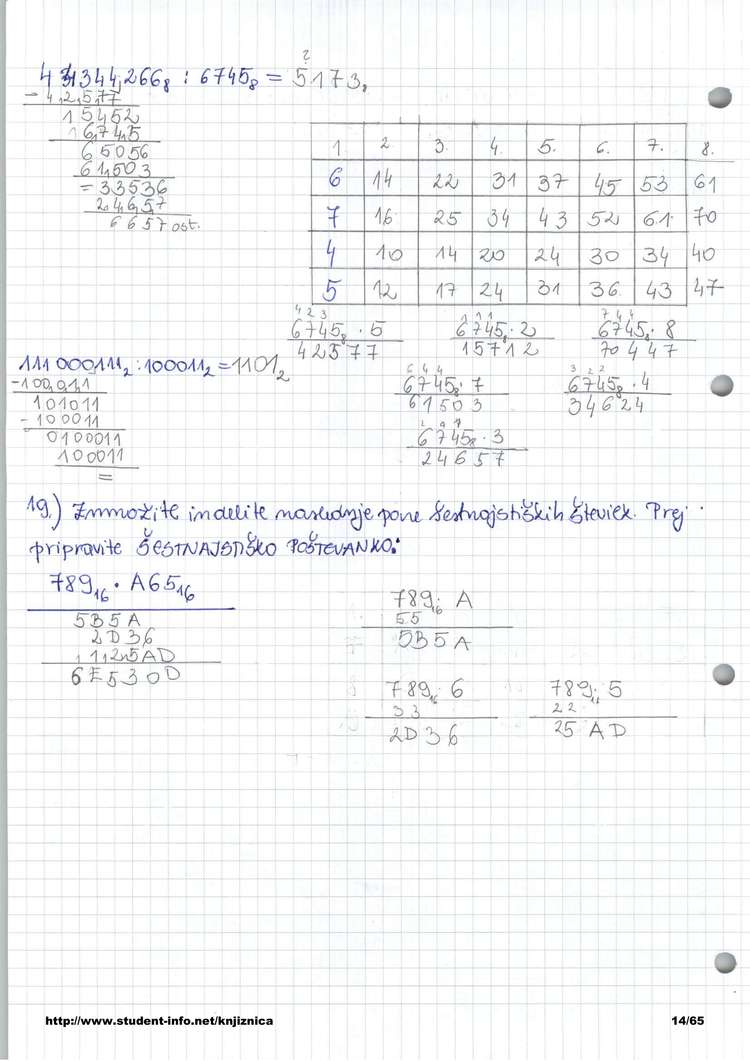 ?
44344,266₈ : 6745₈ = 5173,
- 42577
15452
16745
65056
61503
= 33536
24657
6657 ost.
1. 2. 3. 4. 5. 6. 7. 8.
6 14 22 31 37 45 53 61
7 16 25 34 43 52 61 70
4 10 14 20 24 30 34 40
5 12 17 24 31 36 43 47
4 2 3
6745₈ · 5
42577
1 1 1
6745₈ · 2
15712
7 4 4
6745₈ · 8
70447
111000111₂ : 100011₂ = 1101₂
- 100011
101011
- 100011
0100011
100011
=
6 4 4
6745₈ · 7
61503
3 2 2
6745₈ · 4
34624
6745₈ · 3
24657
19.) Zmnožite in delite naslednje pare šestnajstiških številk. Prej
pripravite ŠESTNAJSTIŠKO POŠTEVANKO:
789₁₆ · A65₁₆
5B5A
2D36
25AD
6E530D
789₁₆ · A
55
5B5A
789₁₆ · 6
33
2D36
789₁₆ · 5
22
25AD
http://www.student-info.net/knjiznica
14/65